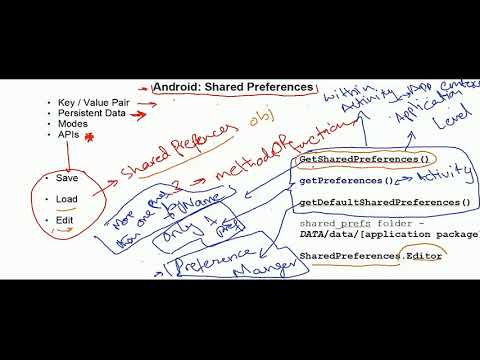 Android: Shared Preferences
Key / Value Pair
Persistent Data
Modes
APIs
Save
Load
Edit
shared Preferences obj
3 → method OR function
within Activity
Context
Application
Level
GetSharedPreferences()
getPreferences() Activity
getDefaultSharedPreferences()
than one
by Name
only 1
Preference
Manger
shared_prefs folder -
DATA/data/[application package]
SharedPreferences.Editor